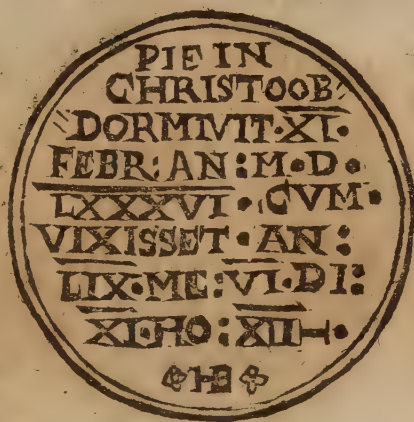 PIE IN
CHRISTO OB⸗
DORMIVIT·XI·
FEBR: AN: M·D·
LXXXVI· CVM·
VIXISSET· AN:
LIX·ME: VI·DI:
XI·HO: XII·
HB